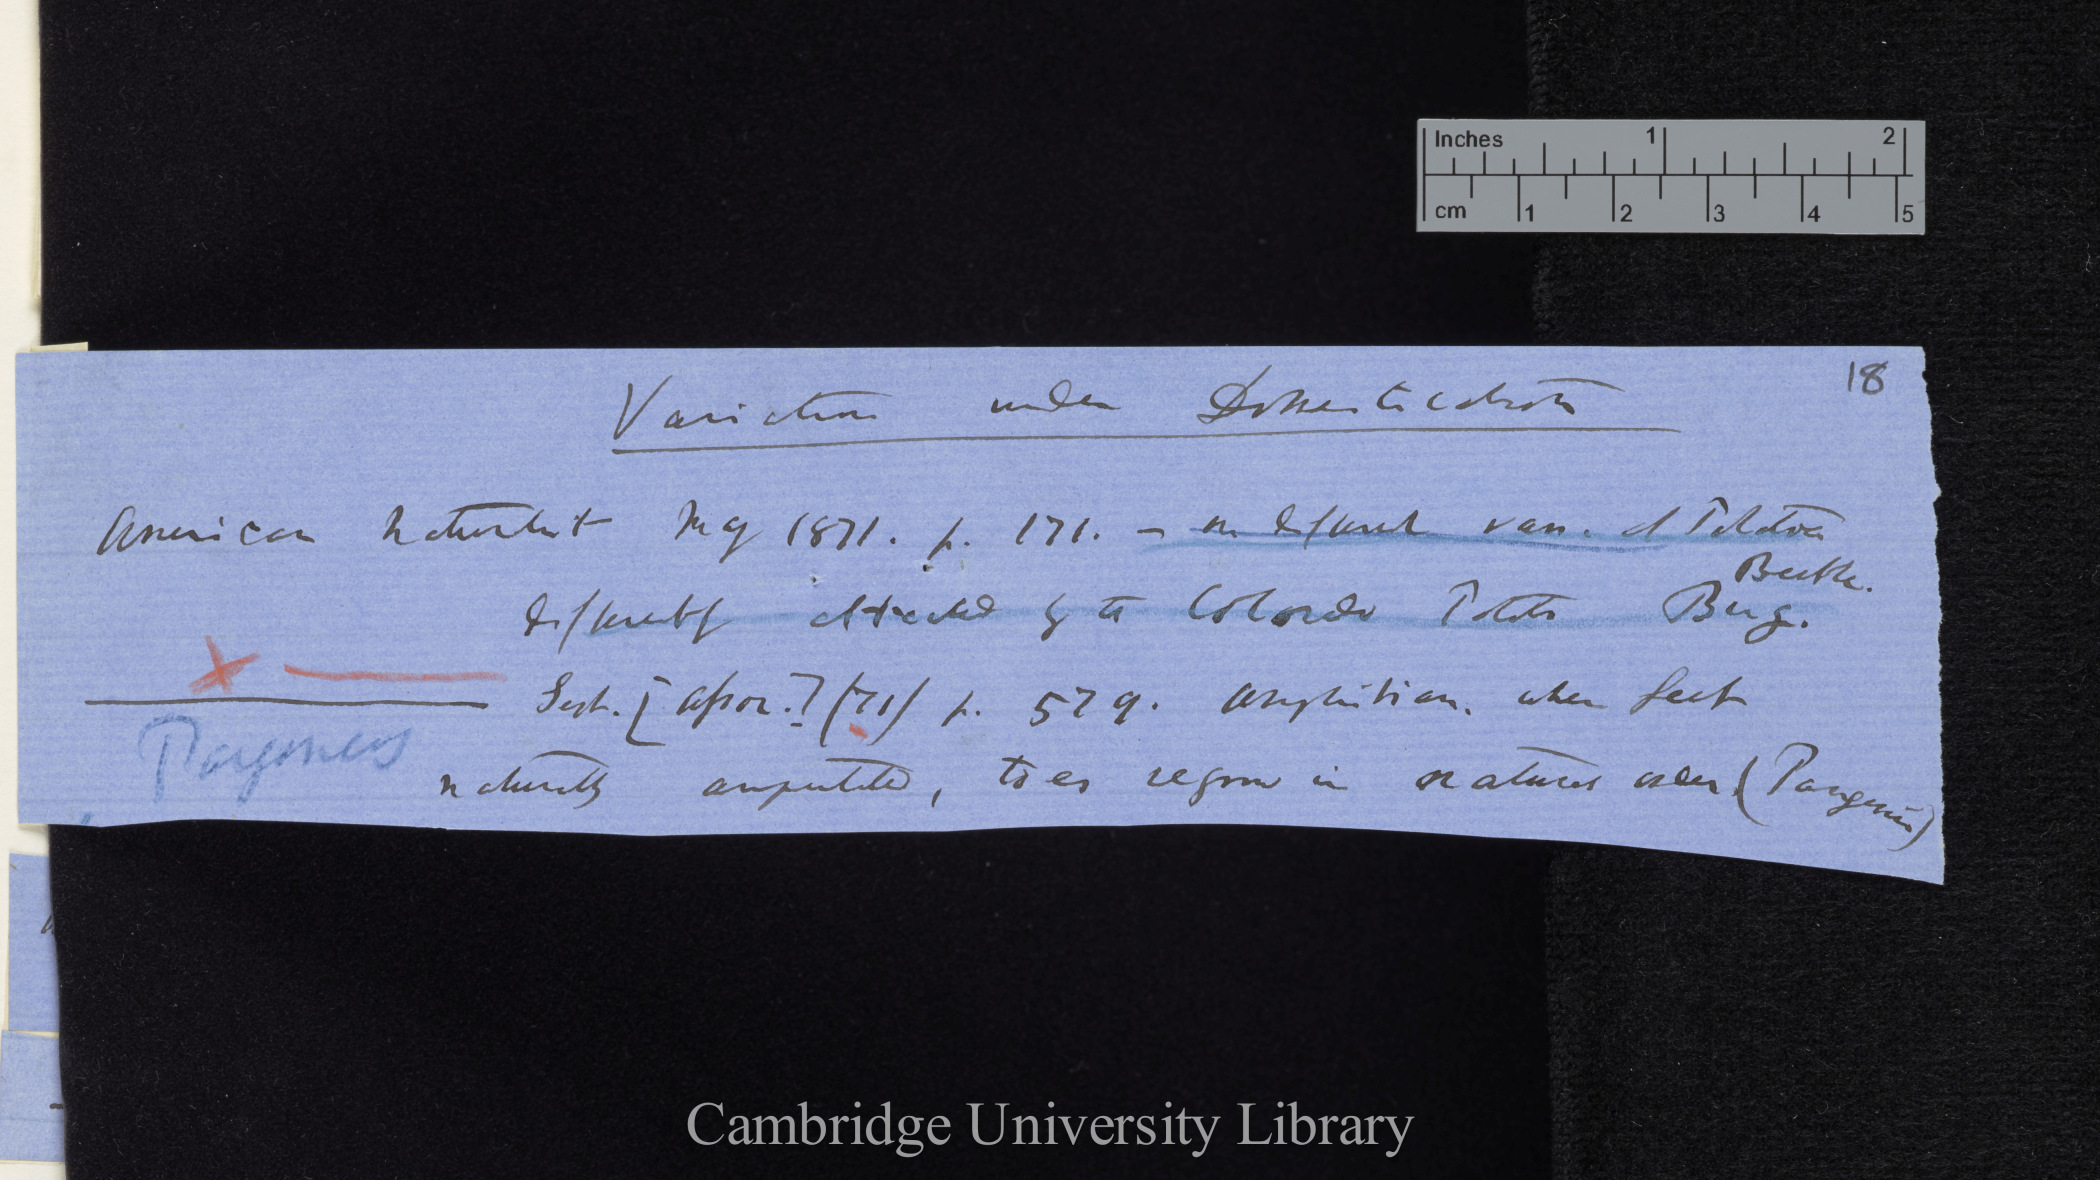 18
Variation under Domestication
American Naturalist May 1871. p. 171. — on different vars. of Potatoes
Beetle.
differently attacked by the Colorado Potato Bug.
Sept. [ (71) p. 579. Amphibian. when feet
Pangenesis
naturally amputated, toes regrow in natural order (Pangenesis)
Inches 1 2
cm 1 2 3 4 5
Cambridge University Library